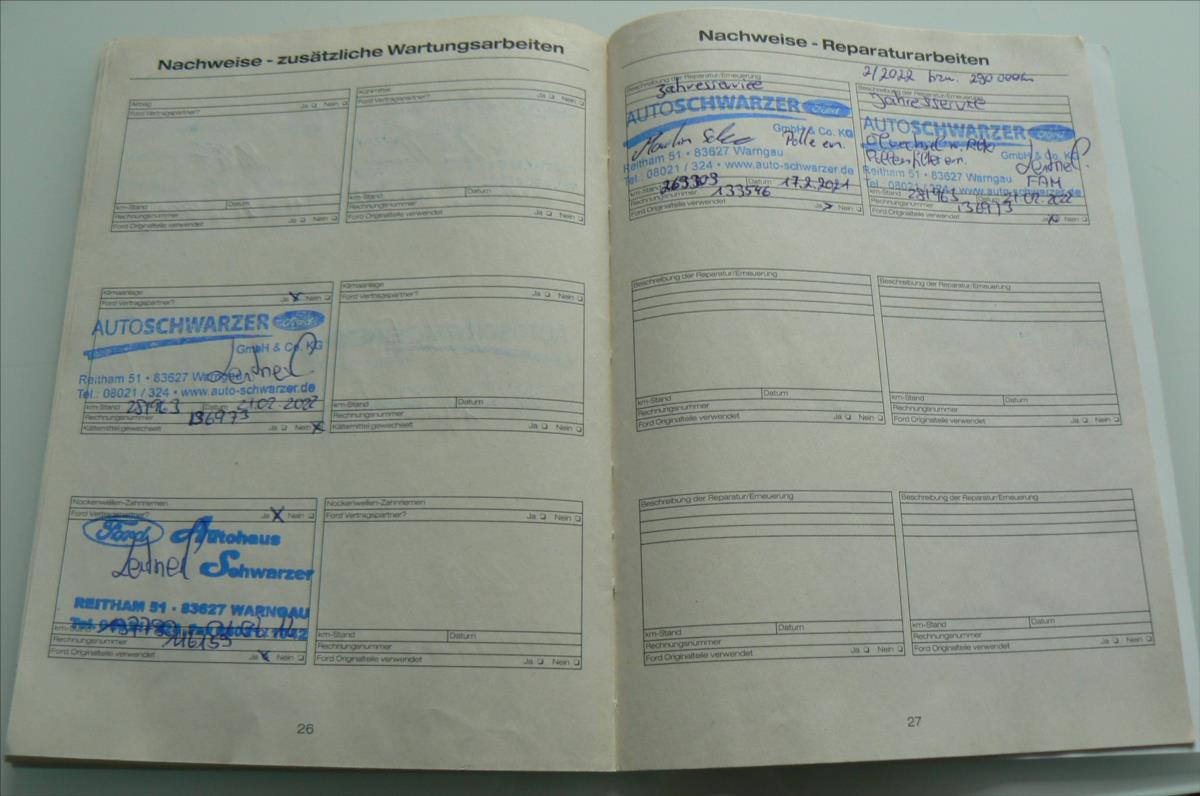 Nachweise - zusätzliche Wartungsarbeiten
Airbag
Ford Vertragspartner? Ja Nein
km-Stand Datum
Rechnungsnummer
Ford Originalteile verwendet Ja Nein
Kühlmittel
Ford Vertragspartner? Ja Nein
km-Stand Datum
Rechnungsnummer
Ford Originalteile verwendet Ja Nein
Klimaanlage
Ford Vertragspartner? Ja x Nein
AUTOSCHWARZER Ford
GmbH & Co. KG
Reitham 51 • 83627 Warngau
Tel.: 08021 / 324 • www.auto-schwarzer.de
km-Stand 281963 Datum 21.02.2022
Rechnungsnummer 136973
Kältemittel gewechselt Ja Nein x
Klimaanlage
Ford Vertragspartner? Ja Nein
km-Stand Datum
Rechnungsnummer
Kältemittel gewechselt Ja Nein
Nockenwellen-Zahnriemen
Ford Vertragspartner? Ja x Nein
Ford Autohaus
Schwarzer
REITHAM 51 • 83627 WARNGAU
km-Stand
Rechnungsnummer 116153
Ford Originalteile verwendet Ja x Nein
Nockenwellen-Zahnriemen
Ford Vertragspartner? Ja Nein
km-Stand Datum
Rechnungsnummer
Ford Originalteile verwendet Ja Nein
26
Nachweise - Reparaturarbeiten
Beschreibung der Reparatur/Erneuerung
Jahresservice
AUTOSCHWARZER Ford
GmbH & Co. KG
Polle ern.
Reitham 51 • 83627 Warngau
Tel.: 08021 / 324 • www.auto-schwarzer.de
km-Stand 269309 Datum 17.2.2021
Rechnungsnummer 133546
Ford Originalteile verwendet Ja x Nein
2/2022 bzw. 290 000km
Beschreibung der Reparatur/Erneuerung
Jahresservice
AUTOSCHWARZER Ford
Pollenfilter ern. GmbH & Co. KG
Reitham 51 • 83627 Warngau
FAM
Tel.: 08021 / 324 • www.auto-schwarzer.de
km-Stand 281963 Datum 21.02.2022
Rechnungsnummer 136973
Ford Originalteile verwendet Ja x Nein
Beschreibung der Reparatur/Erneuerung
km-Stand Datum
Rechnungsnummer
Ford Originalteile verwendet Ja Nein
Beschreibung der Reparatur/Erneuerung
km-Stand Datum
Rechnungsnummer
Ford Originalteile verwendet Ja Nein
Beschreibung der Reparatur/Erneuerung
km-Stand Datum
Rechnungsnummer
Ford Originalteile verwendet Ja Nein
Beschreibung der Reparatur/Erneuerung
km-Stand Datum
Rechnungsnummer
Ford Originalteile verwendet Ja Nein
27